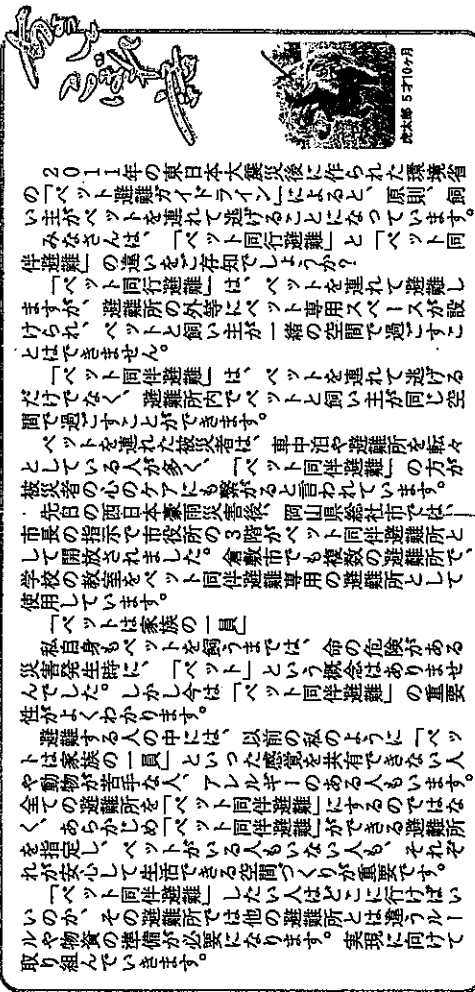 虎太郎 5才10ヶ月
2011年の東日本大震災後に作られた環境省
の「ペット避難ガイドライン」によると、原則、飼
い主がペットを連れて逃げることになっています。
みなさんは、「ペット同行避難」と「ペット同
伴避難」の違いをご存知でしょうか?
「ペット同行避難」は、ペットを連れて避難し
ますが、避難所の外等にペット専用スペースが設
けられ、ペットと飼い主が一緒の空間で過ごすこ
とはできません。
「ペット同伴避難」は、ペットを連れて逃げる
だけでなく、避難所内でペットと飼い主が同じ空
間で過ごすことができます。
ペットを連れた被災者は、車中泊や避難所を転々
としている人が多く、「ペット同伴避難」の方が
被災者の心のケアにも繋がると言われています。
先日の西日本豪雨災害後、岡山県総社市では、
市長の指示で市役所の3階がペット同伴避難所と
して開放されました。倉敷市でも複数の避難所で、
学校の教室をペット同伴避難専用の避難所として
使用しています。
「ペットは家族の一員」
私自身もペットを飼うまでは、命の危険がある
災害発生時に、「ペット」という概念はありませ
んでした。しかし今は「ペット同伴避難」の重要
性がよくわかります。
避難する人の中には、以前の私のように「ペッ
トは家族の一員」といった感覚を共有できない人
や動物が苦手な人、アレルギーのある人もいます。
全ての避難所を「ペット同伴避難」にするのではな
く、あらかじめ「ペット同伴避難」ができる避難所
を指定し、ペットがいる人もいない人も、それぞ
れが安心して生活できる空間づくりが重要です。
「ペット同伴避難」したい人はどこに行けばい
いのか、その避難所では他の避難所とは違うルー
ルや物資の準備が必要になります。実現に向けて
取り組んでいきます。